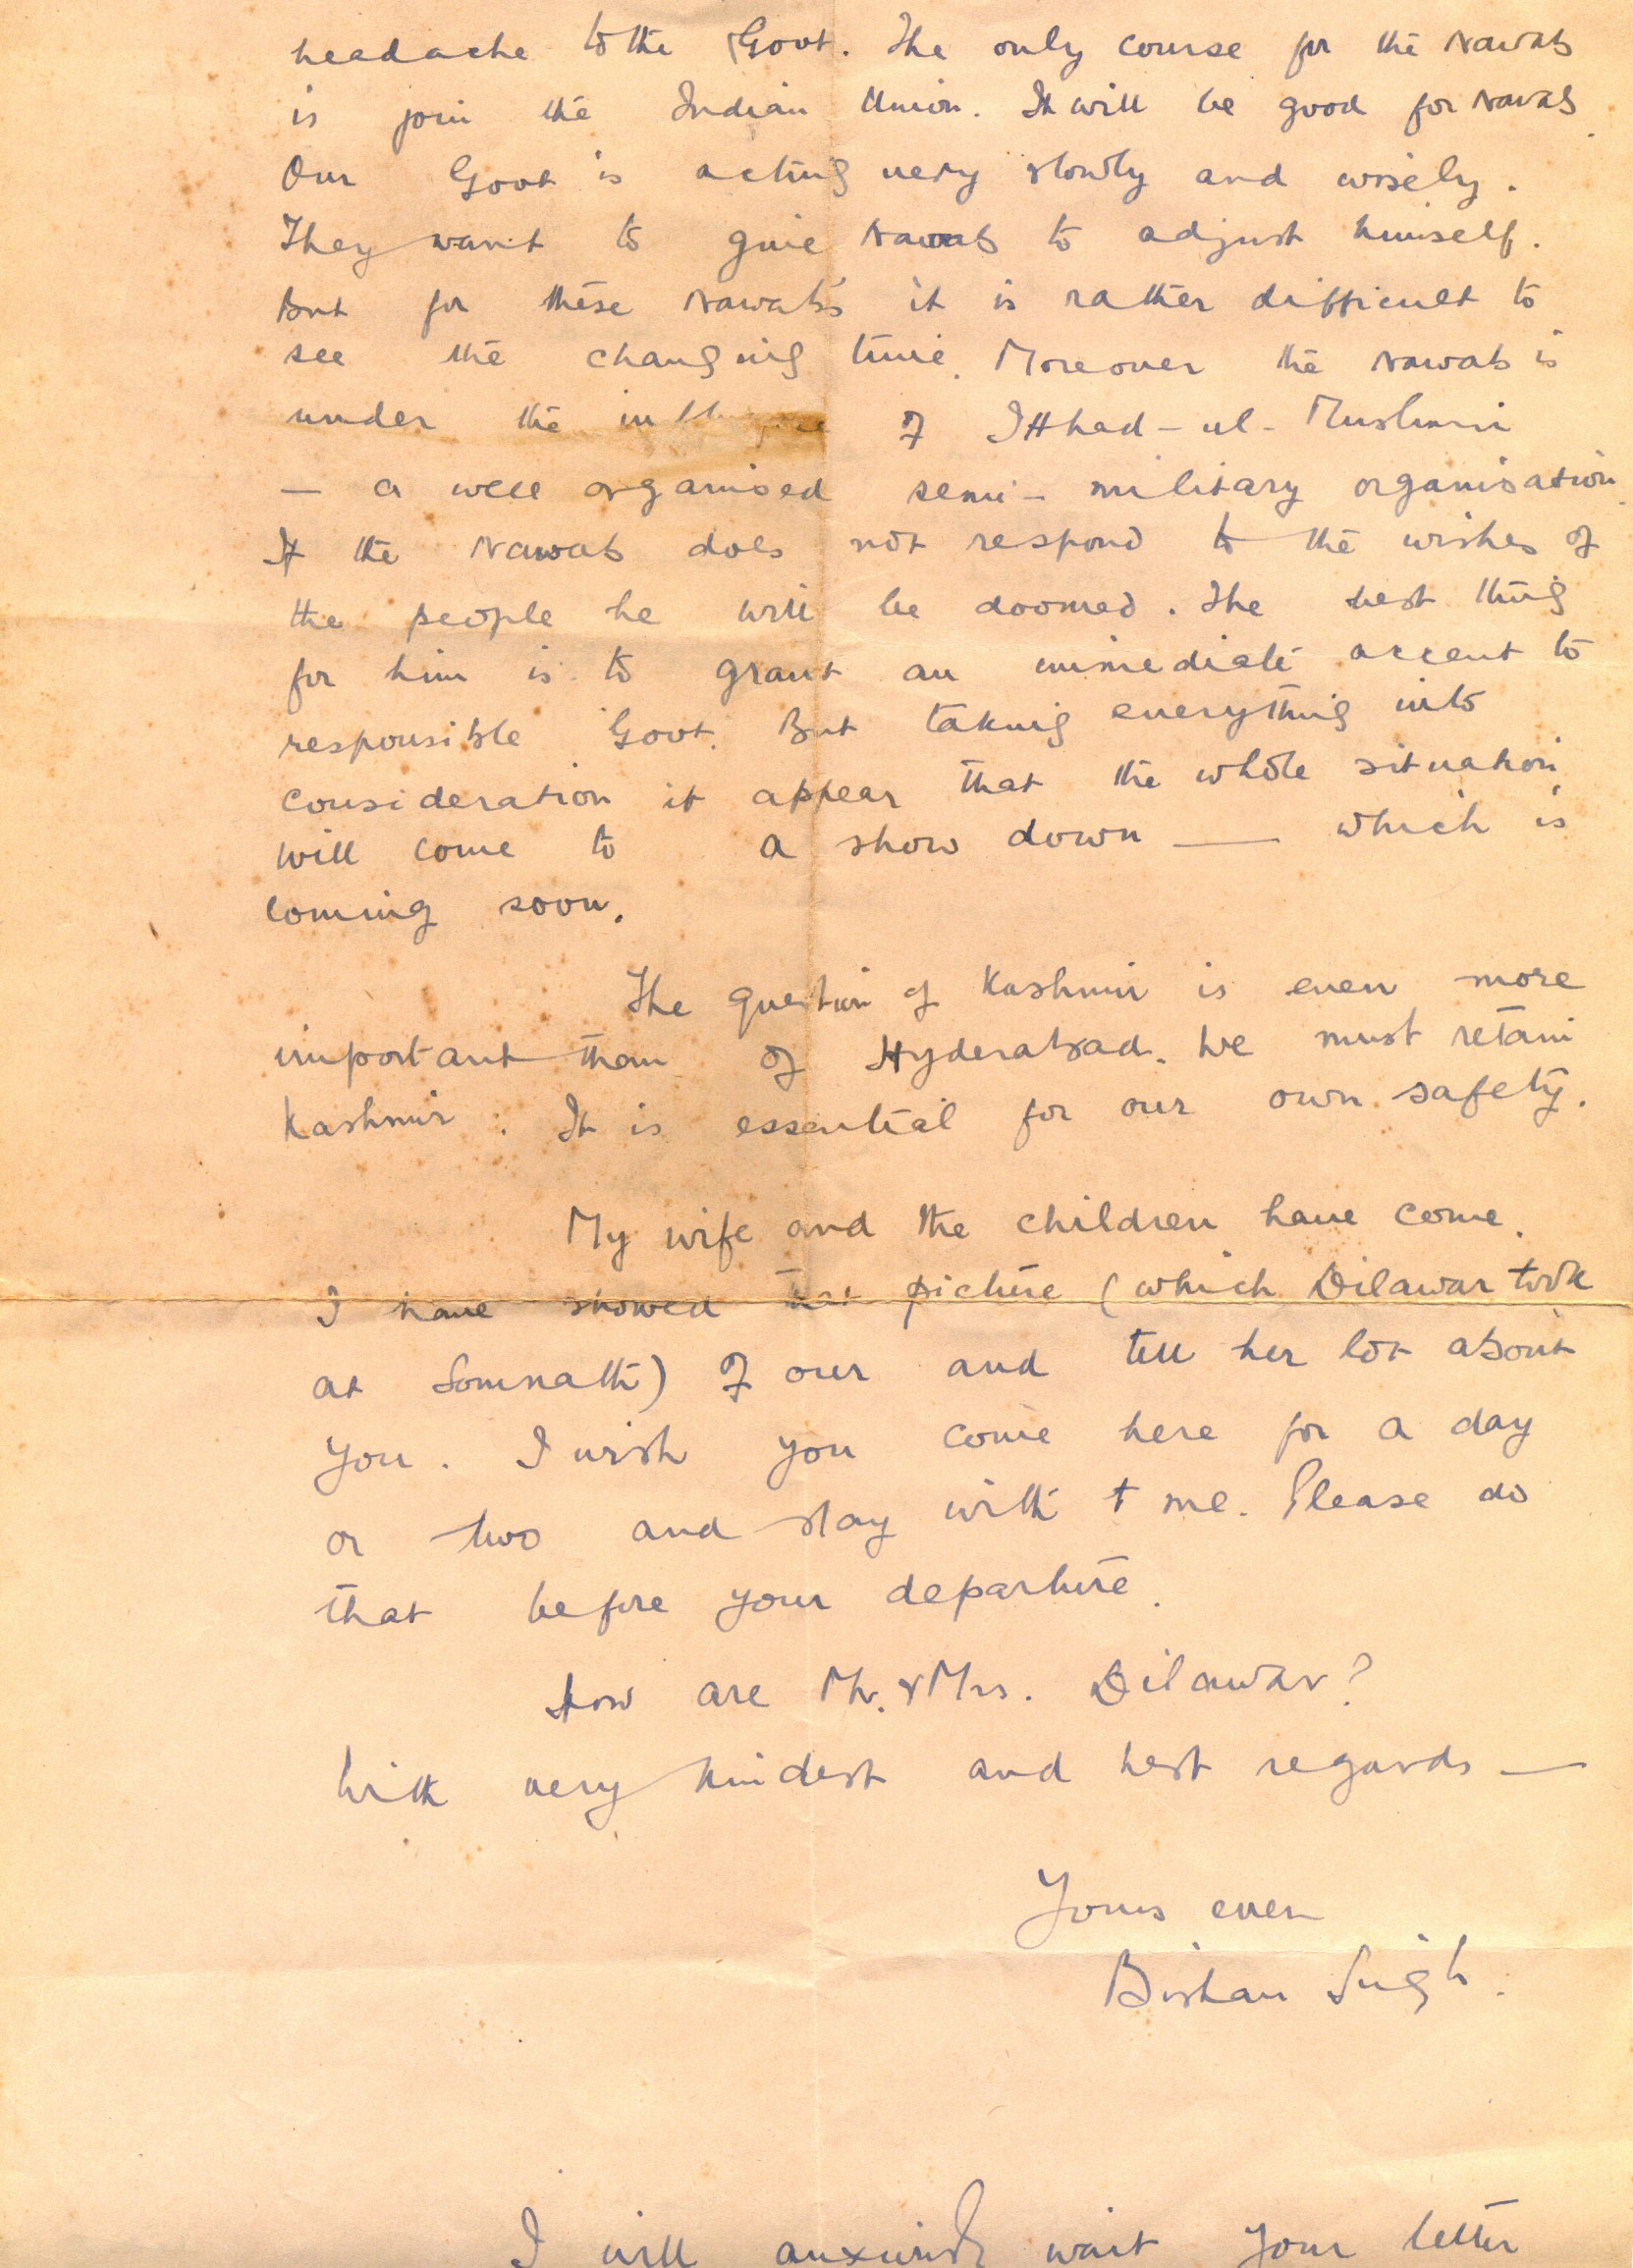 headache to the Govt. The only course for the Nawab
is join the Indian Union. It will be good for Nawab.
Our Govt is acting very slowly and wisely.
They want to give Nawab to adjust himself.
But for these Nawabs it is rather difficult to
see the changing time. Moreover the Nawab is
under the of Itthad-ul-Muslimin
— a well organised semi-military organisation.
If the Nawab does not respond to the wishes of
the people he will be doomed. The best thing
for him is to grant an immediate accent to
responsible Govt. But taking everything into
consideration it appear that the whole situation
will come to a show down — which is
coming soon.
The question of Kashmir is even more
important than of Hyderabad. We must retain
Kashmir. It is essential for our own safety.
My wife and the children have come.
I have showed picture (which Dilawar took
at Somnath) of our and tell her lot about
you. I wish you come here for a day
or two and stay with me. Please do
that before your departure.
How are Mr. & Mrs. Dilawar?
With very kindest and best regards —
Yours ever
Bishan Singh.
I will anxiously wait your letter